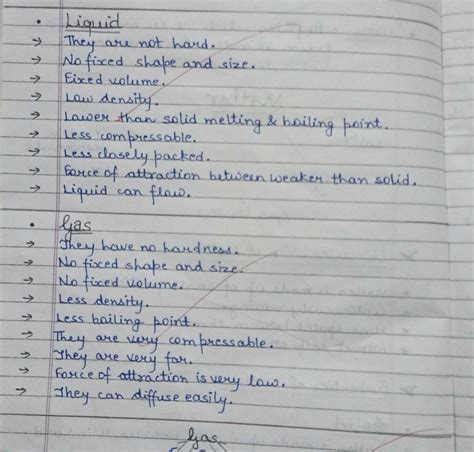 • Liquid
→ They are not hard.
→ No fixed shape and size.
→ Fixed volume.
→ Low density.
→ Lower than solid melting & boiling point.
→ Less compressable.
→ Less closely packed.
→ Force of attraction between weaker than solid.
→ Liquid can flow.
• Gas
→ They have no hardness.
→ No fixed shape and size.
→ No fixed volume.
→ Less density.
→ Less boiling point.
→ They are very compressable.
→ They are very far.
→ Force of attraction is very low.
→ They can diffuse easily.
Gas